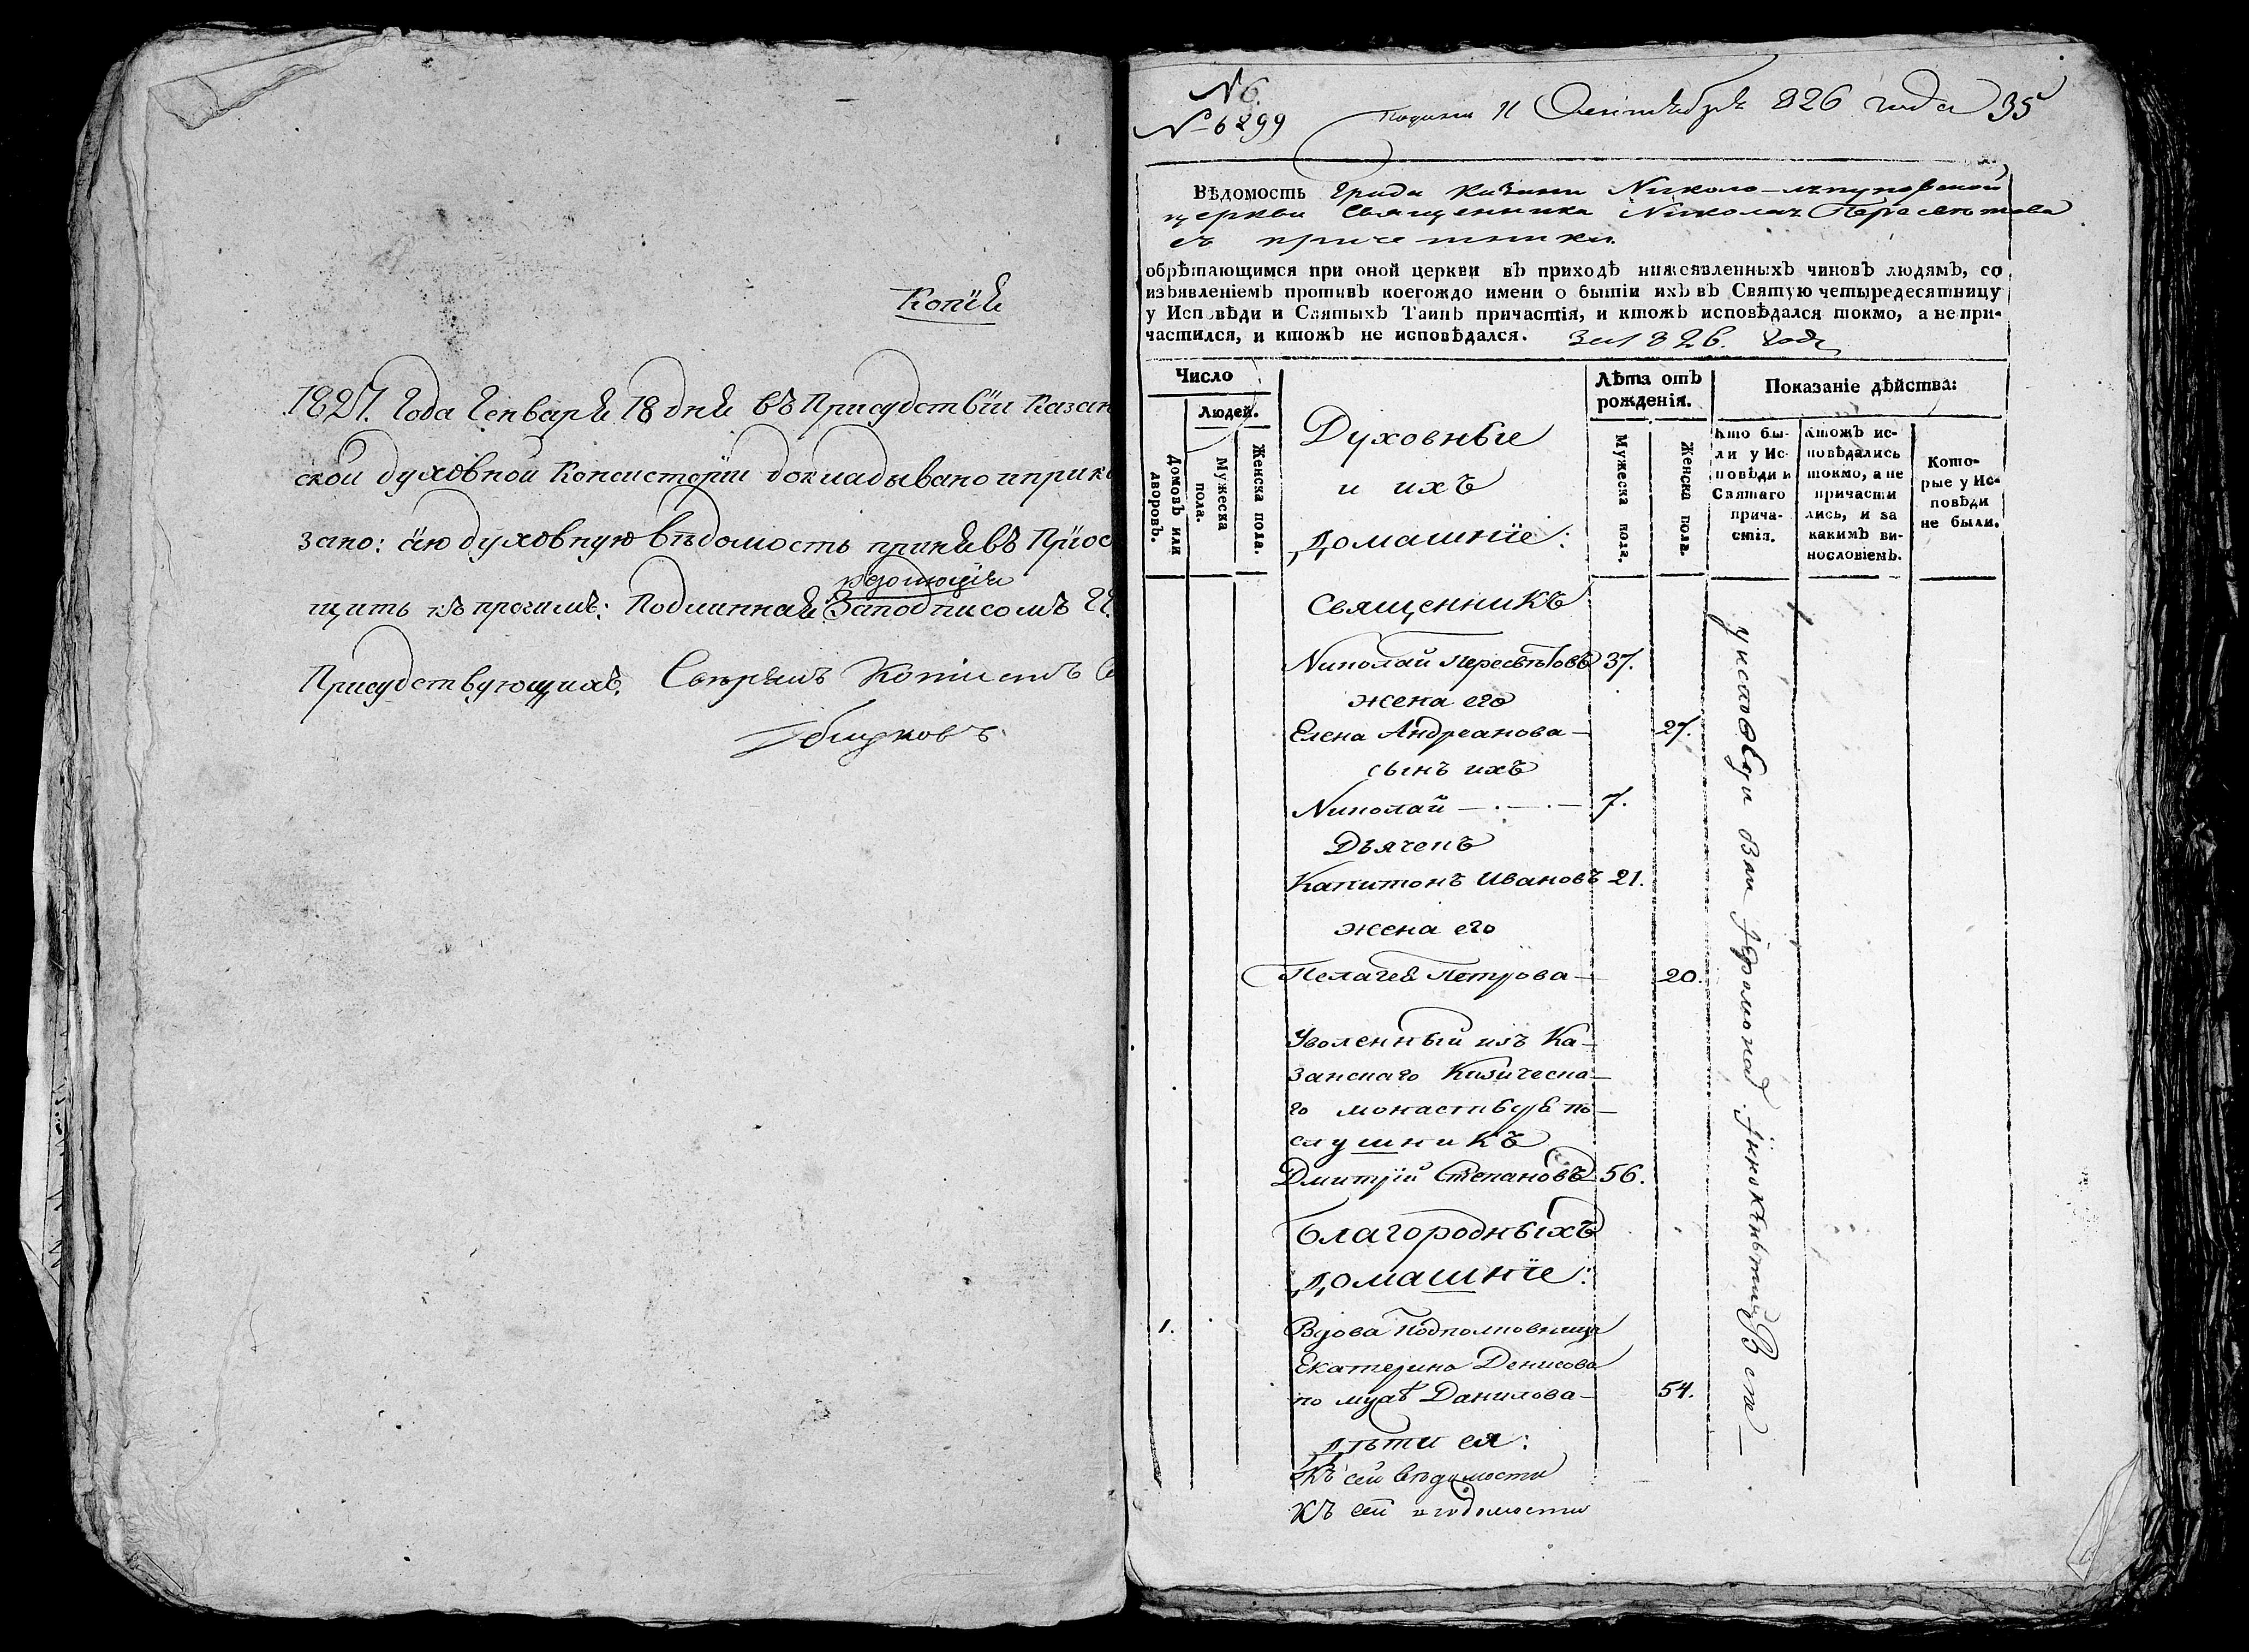 Копія
1827. года Генваря 18 дня въ Присудствіи Казан
ской духовной Консисторіи докладывано и прика
зано: сію духовную вѣдомость принявъ Пріоб
щить къ прочимъ: Подлинная резолюція За подписомъ Гг.
Присудствующихъ. Свѣрялъ Копіистъ
№ 6.
№ 6299 Подана 11 Сентября 826 года 35
Вѣдомость града Казани Николо-ляпуновской
церкви Священника Николая Пересветова
съ причетники
обрѣтающимся при оной церкви въ приходѣ нижеявленныхъ чиновъ людямъ, со
изъявленіемъ противъ коегождо имени о бытіи ихъ въ Святую четыредесятницу
у Исповѣди и Святыхъ Таинъ причастія, и ктожъ исповѣдался токмо, а не при-
частился, и ктожъ не исповѣдался. За 1826. годъ
Число
Людей.
Домовъ или дворовъ.
Мужеска пола.
Женска пола.
Духовные
и ихъ
домашніе:
Лѣта отъ рожденія.
Мужеска пола.
Женска пола.
Показаніе дѣйства:
Кто бы-
ли у Ис-
повѣди и
Святаго
прича-
стія.
Ктожъ ис-
повѣдались
токмо, а не
причасти
лись, и за
какимъ ви-
нословіемъ.
Кото-
рые у Ис-
повѣди
не были.
Священникъ
Николай Пересвѣтовъ 37.
жена его
Елена Андреанова — 27.
сынъ ихъ
Николай — 7.
Дьячекъ
Капитонъ Ивановъ 21.
жена его
Пелагея Петрова — 20.
Уволенный изъ Ка-
занскаго Кизическа-
го монастыря по-
слушникъ
Дмитрій Степановъ 56.
Благородныхъ
домашніе:
1. Вдова Подполковница
Екатерина Денисова
по мужѣ Данилова — 54.
дѣти ея:
Къ сей вѣдомости
къ сей ведомости